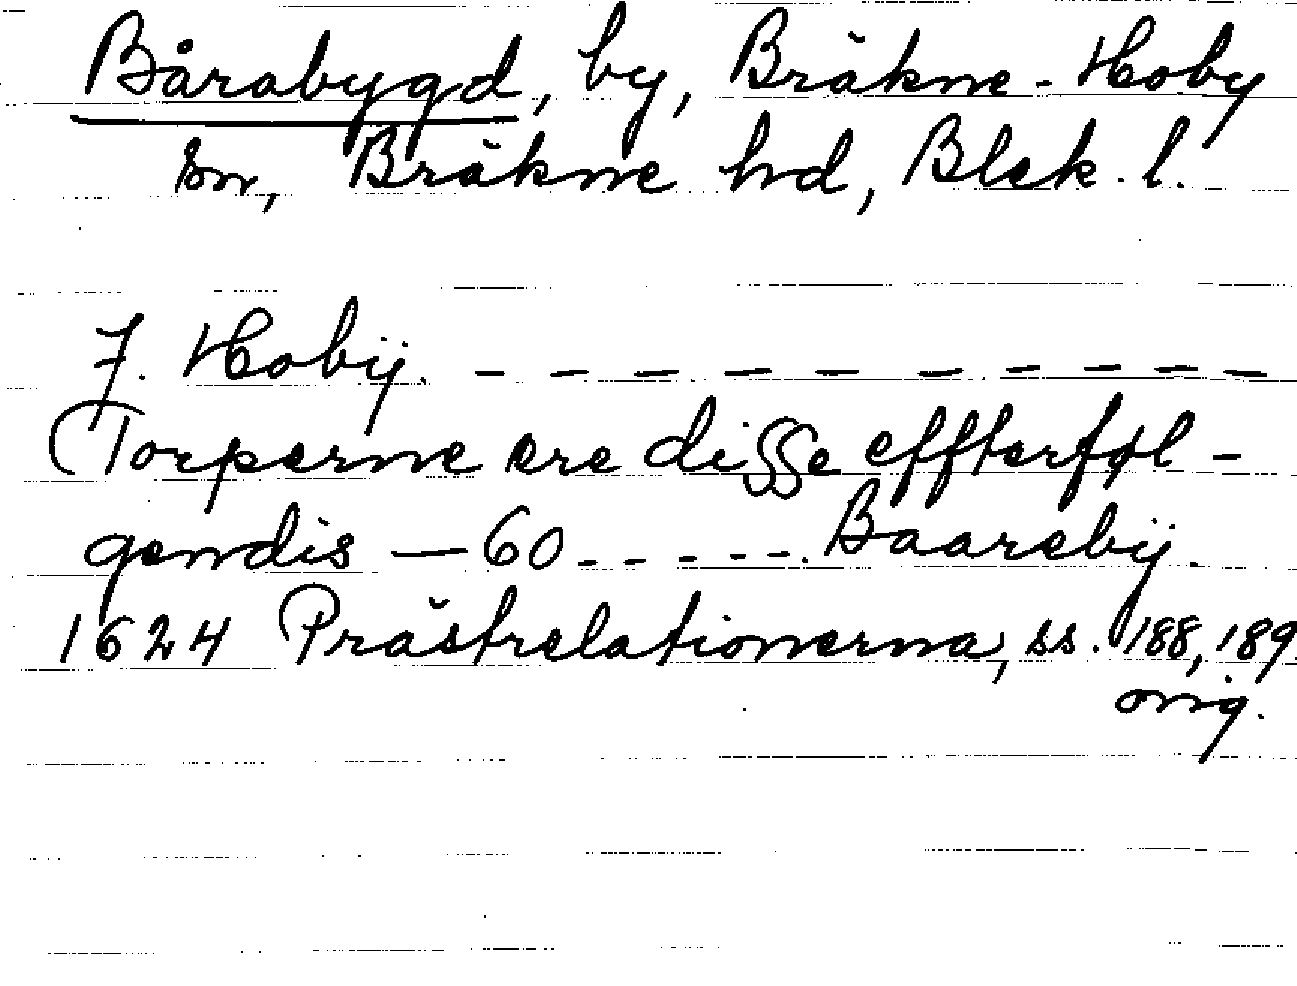 Bårabygd, by, Bräkne-Hoby
sn, Bräkne hd, Blek. l.
J. Hobÿ. – – – – – – – – – –
Torperne ere disse effterføl-
gendis — 60 - - - - - . Baarebÿ.
1624 Prästrelationerna, ss. 188, 189
orig.